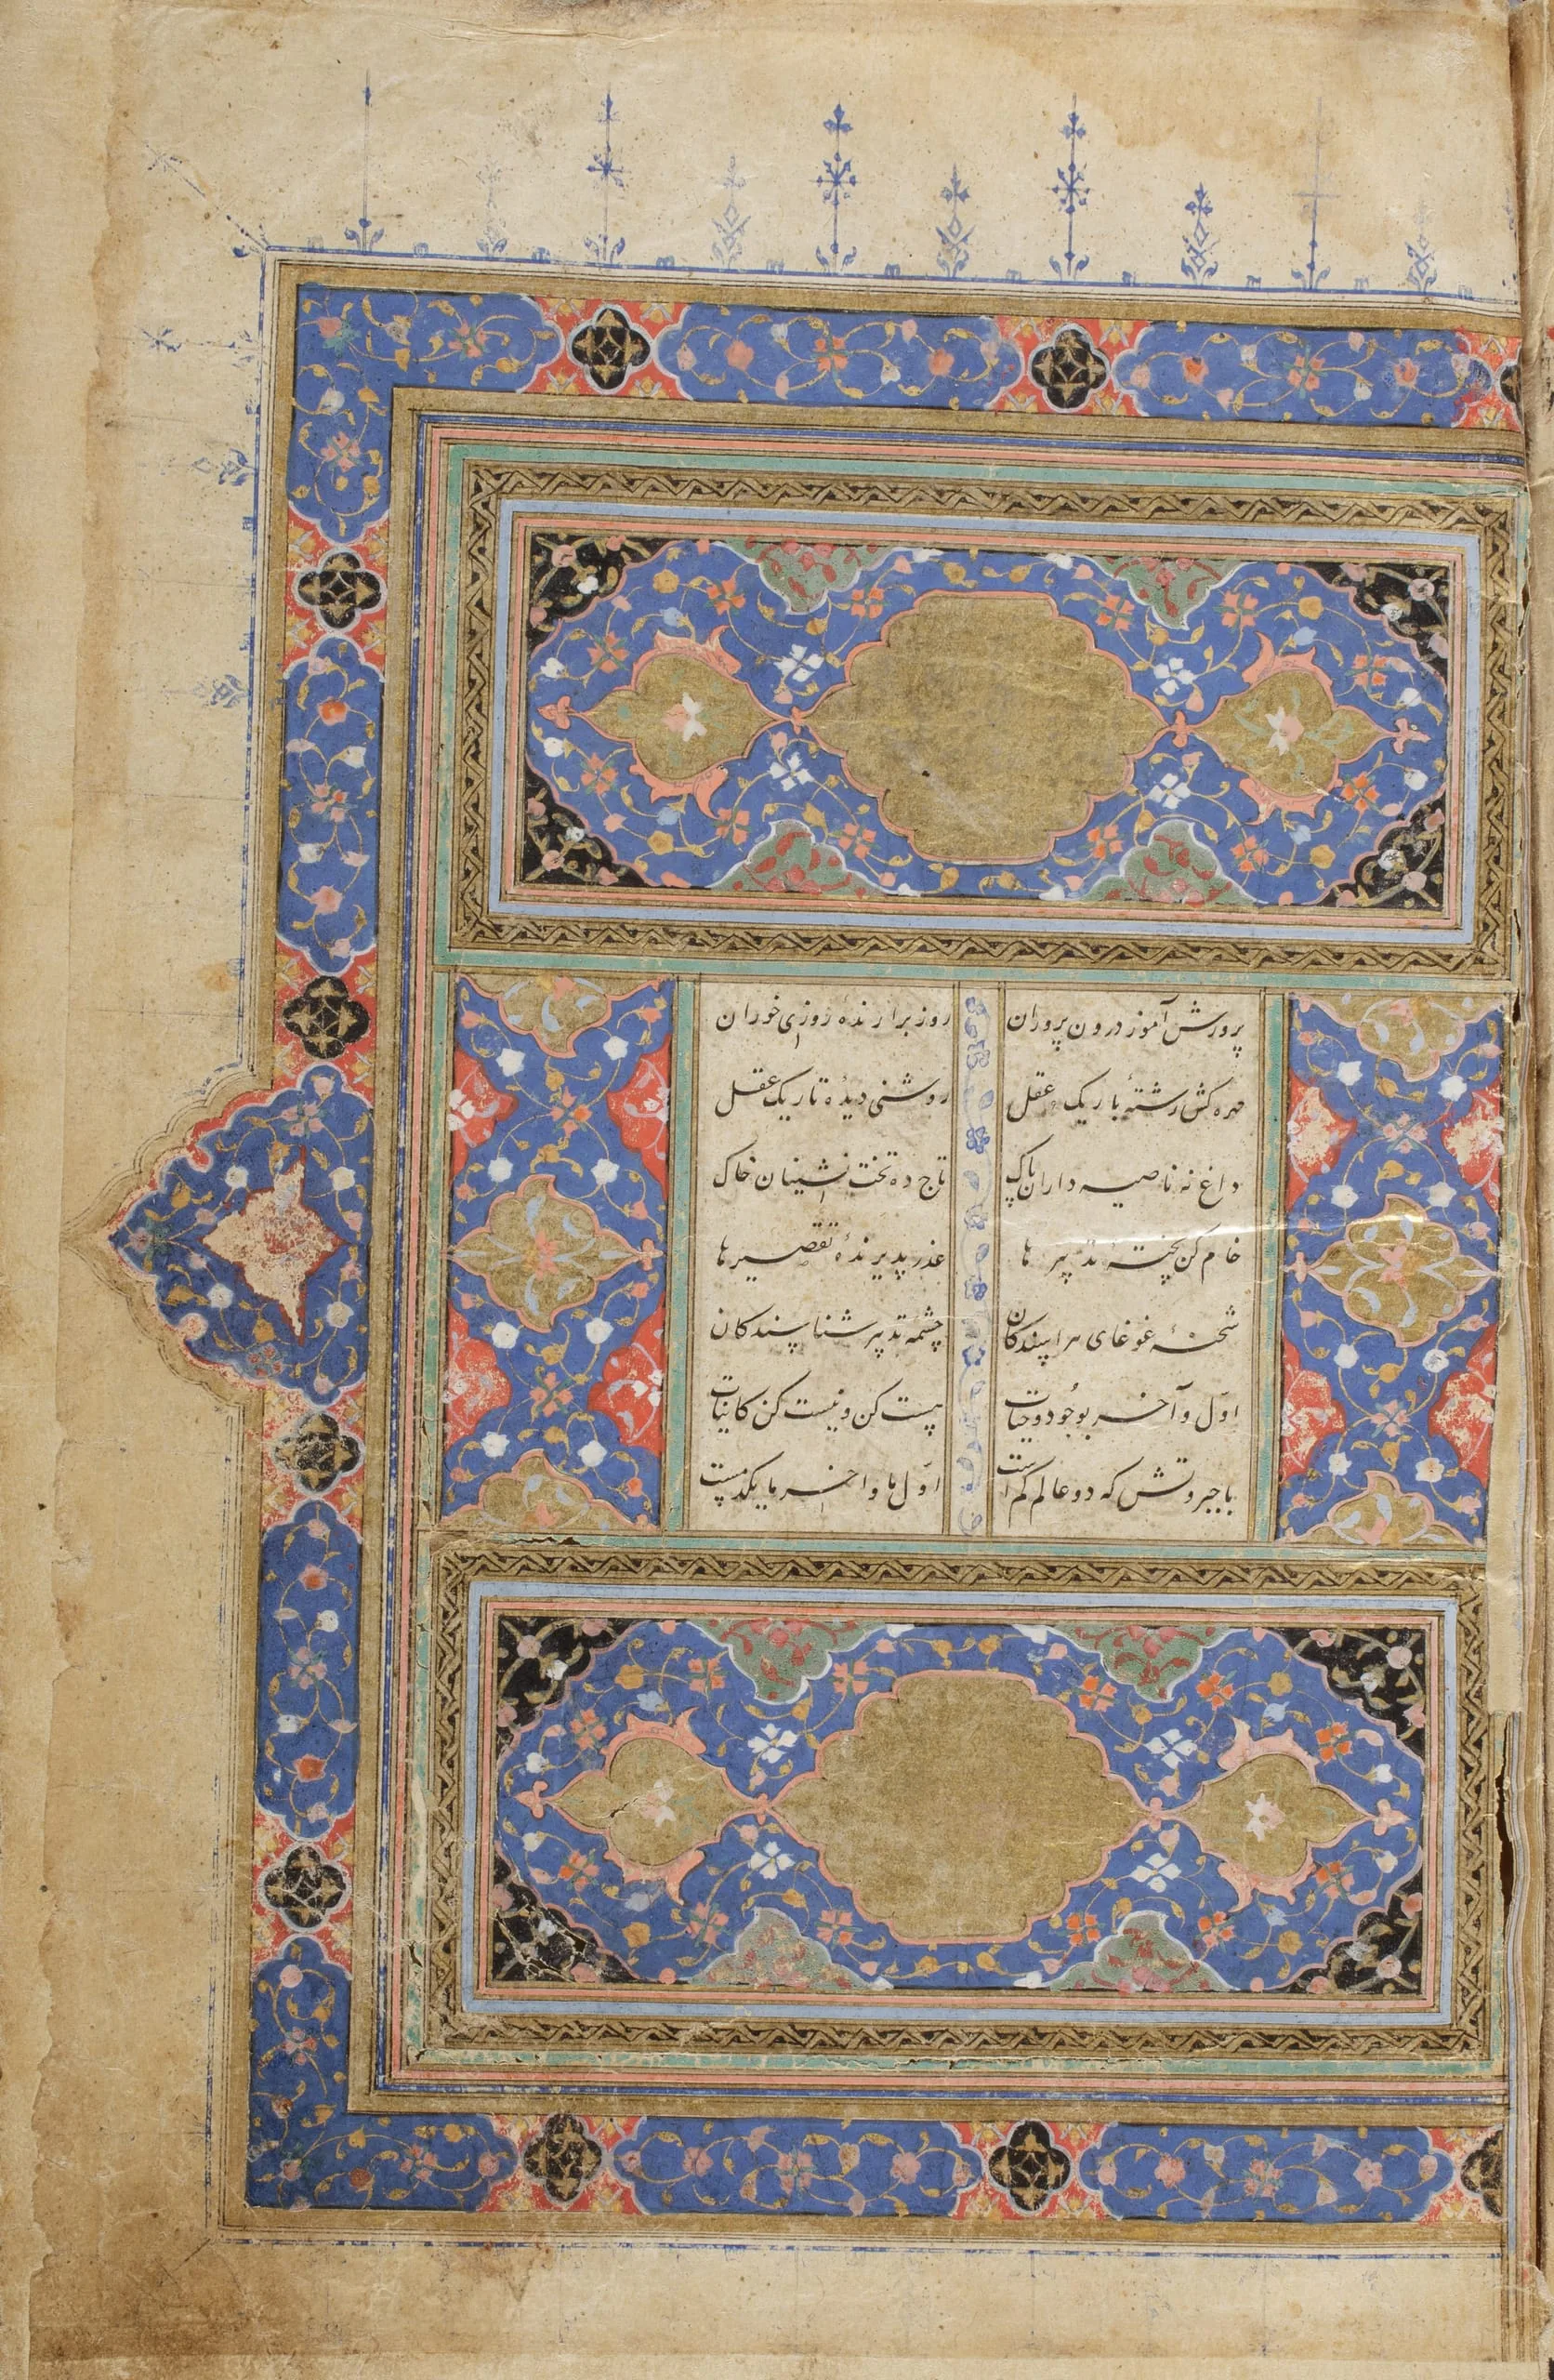 پرورش آموز درون پروران روز برارندهٔ روزی خوران
مهره کش رشتهٔ باریک عقل روشنی دیدهٔ تاریک عقل
داغ نه ناصیه داران پاک تاج ده تخت نشینان خاک
خام کن پختهٔ تدبیرها عذر پدیرندهٔ تقصیرها
شحنهٔ غوغای هراسندکان چشمهٔ تدبیر شناسندکان
اوّل و آخر بوجُود و حیات هست کن و نیست کن کاینات
با جبروتش که دو عالم کم است اوّل ما واخر ما یکدمست